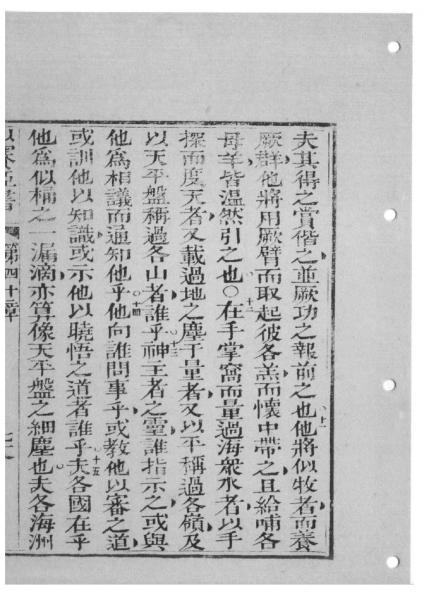 夫其得之賞偕之並厥功之報前之也他將似牧者而養
厥群他將用厥臂而取起彼各羔而懷中帶之且給哺各
母羊皆温然引之也○在手掌窩而量過海衆水者以手
探而度天者又載過地之塵于量者又以平稱過各嶺及
以天平盤稱過各山者誰乎神王者之靈誰指示之或與
他爲相議而通知他乎他向誰問事乎或教他以審之道
或訓他以知識或示他以曉悟之道者誰乎夫各國在乎
他爲似桶之一漏滴亦算像天平盤之細塵也夫各海洲
第四十章